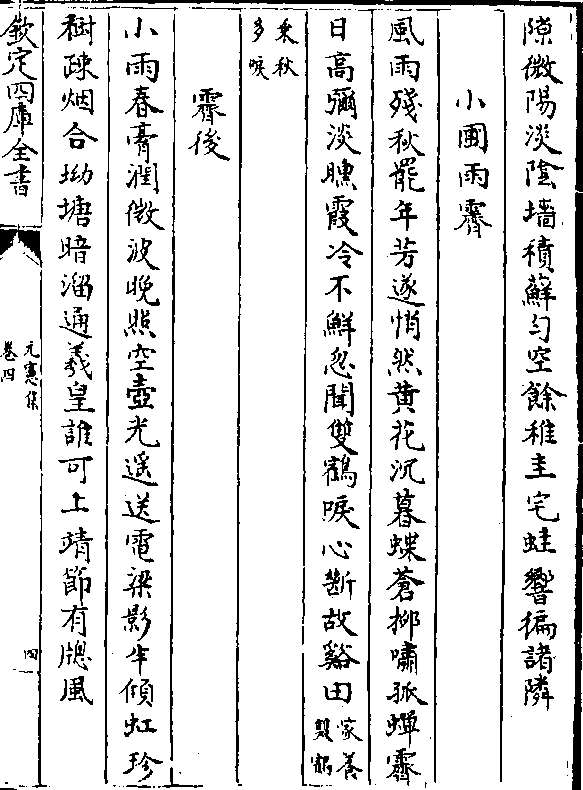 隙微陽淡陰墻積蘚勻空餘稚圭宅蛙響徧諸隣
小圃雨霽
風雨殘秋罷年芳遂悄然黄花沉暮蝶蒼柳嘯孤蟬霽
日高彌淡曛霞冷不鮮忽聞雙鶴唳心斷故谿田家養雙鶴
乗秋多唳
霽後
小雨春膏潤微波晚照空壺光遥送電梁影半傾虹珍
樹疎烟合坳塘暗溜通羲皇誰可上靖節有牕風
欽定四庫全書
元憲集
卷四
四